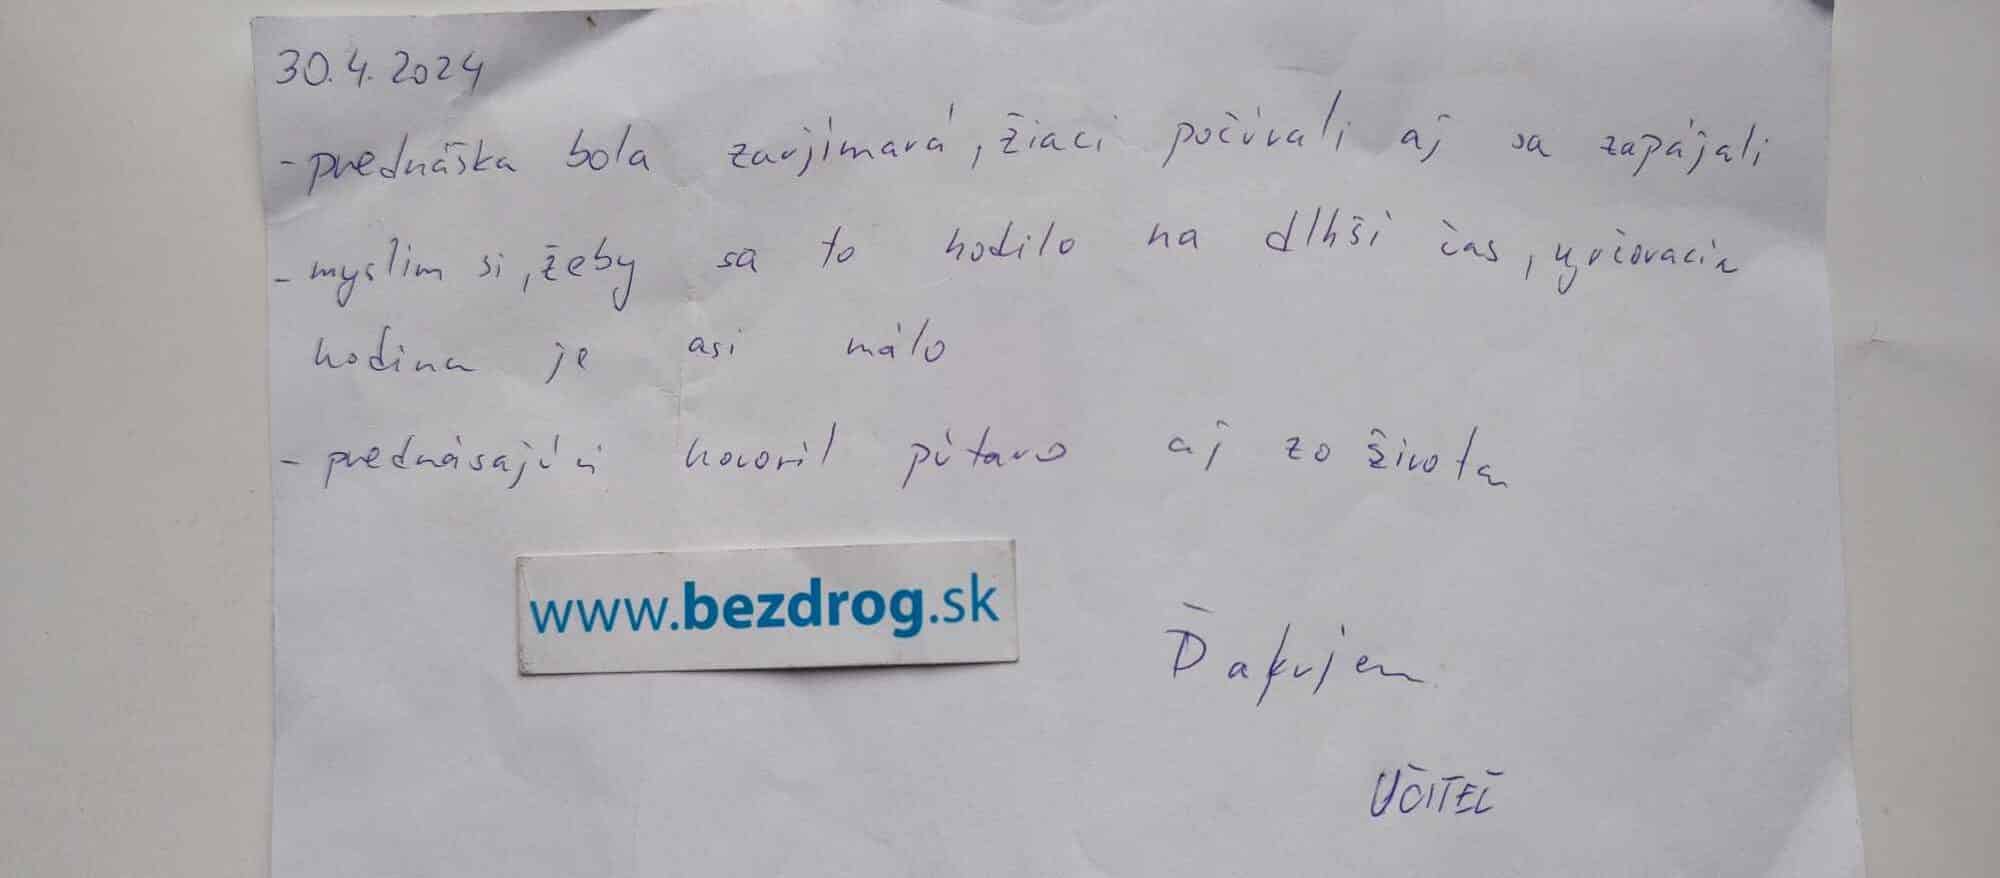 30.4.2024
- prednáška bola zaujímavá, žiaci počúvali aj sa zapájali
- myslim si, žeby sa to hodilo na dlhší čas, vyučovacia
hodina je asi málo
- prednásajúci hovoril pútavo aj zo života
www.bezdrog.sk
Ďakujem
UČITEĽ